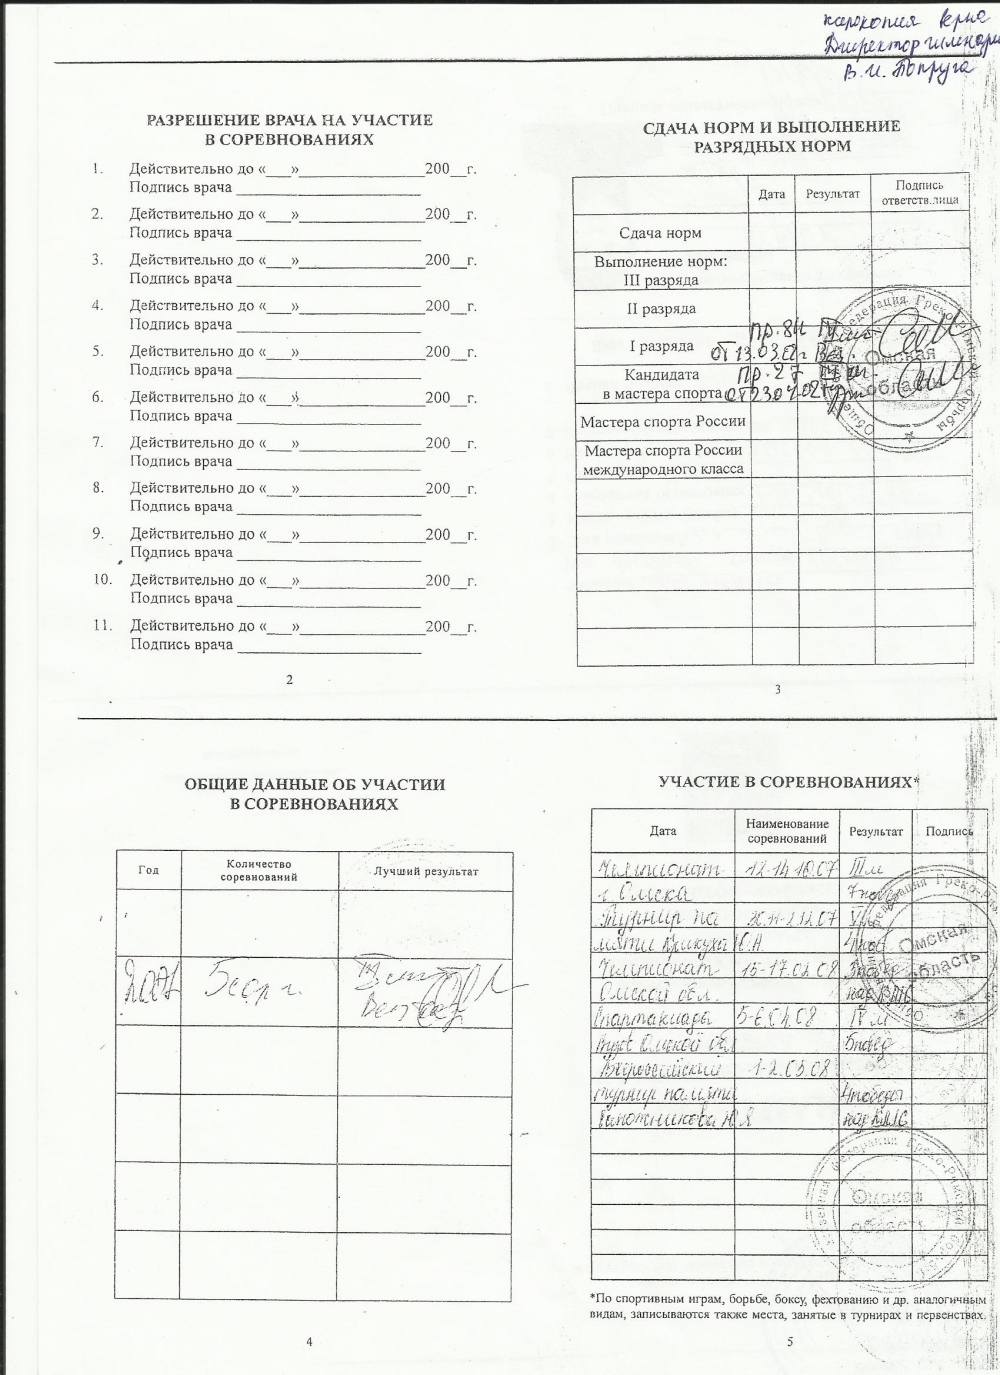 верна
Директор
В.И. Попруга
РАЗРЕШЕНИЕ ВРАЧА НА УЧАСТИЕ
В СОРЕВНОВАНИЯХ
1. Действительно до «___»________________200__г.
Подпись врача ________________________
2. Действительно до «___»________________200__г.
Подпись врача ________________________
3. Действительно до «___»________________200__г.
Подпись врача ________________________
4. Действительно до «___»________________200__г.
Подпись врача ________________________
5. Действительно до «___»________________200__г.
Подпись врача ________________________
6. Действительно до «___»________________200__г.
Подпись врача ________________________
7. Действительно до «___»________________200__г.
Подпись врача ________________________
8. Действительно до «___»________________200__г.
Подпись врача ________________________
9. Действительно до «___»________________200__г.
Подпись врача ________________________
10. Действительно до «___»________________200__г.
Подпись врача ________________________
11. Действительно до «___»________________200__г.
Подпись врача ________________________
2
СДАЧА НОРМ И ВЫПОЛНЕНИЕ
РАЗРЯДНЫХ НОРМ
Дата Результат Подпись
ответств.лица
Сдача норм
Выполнение норм:
III разряда
II разряда
I разряда
Кандидата
в мастера спорта
Мастера спорта России
Мастера спорта России
международного класса
Федерация Греко-Римской борьбы
Омская
область
3
ОБЩИЕ ДАННЫЕ ОБ УЧАСТИИ
В СОРЕВНОВАНИЯХ
Год Количество
соревнований Лучший результат
2007
4
УЧАСТИЕ В СОРЕВНОВАНИЯХ*
Дата Наименование
соревнований Результат Подпись
Чемпионат 12-14.10.07 III м
г. Омска
Турнир па
мяти
Чемпионат 15-17.02.08
Омской обл.
Спартакиада IV м
Омской обл
Всероссийский 1-2.03.08
турнир памяти 4 победы
над КМС
Федерация Греко-Римской
Омская
область
Федерация Греко-Римской
Омская
область
*По спортивным играм, борьбе, боксу, фехтованию и др. аналогичным
видам, записываются также места, занятые в турнирах и первенствах.
5